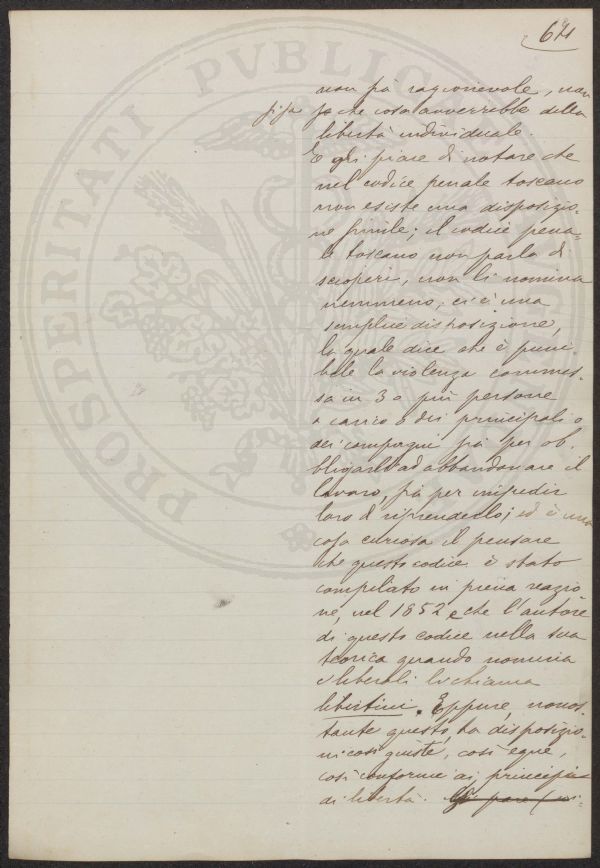 64
non sia ragionevole, non
si sa che cosa avverrebbe della
libertà individuale.
E gli piace di notare che
nel codice penale toscano
non esiste una disposizio-
ne simile; il codice pena-
le toscano non parla di
scioperi, non li nomina
nemmeno, ci è una
semplice disposizione,
la quale dice che è puni-
bile la violenza commes-
sa in 3 o più persone
a carico dei principali o
dei compagni sia per ob-
bligarli ad abbandonare il
lavoro, sia per impedir
loro di riprenderlo; ed è una
cosa curiosa il pensare
che questo codice è stato
compilato in piena reazio
ne, nel 1852 e che l'autore
di questo codice nella sua
teorica quando nomina
i liberali li chiama
libertini. Eppure, nonos-
tante questo, ha disposizio-
ni così giuste, così eque,
così conformi ai principii
di libertà.
PROSPERITATI PVBLICAE